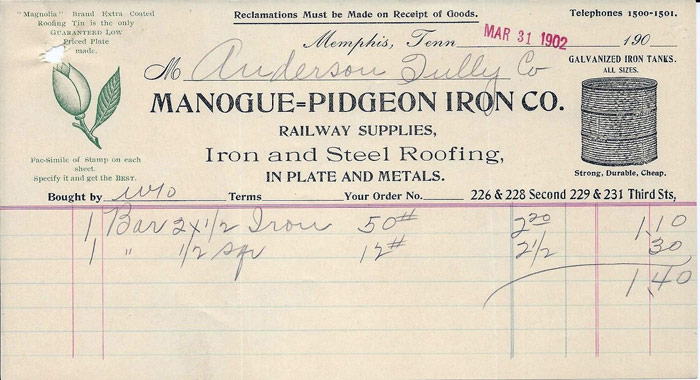 "Magnolia" Brand Extra Coated
Roofing Tin is the only
GUARANTEED LOW
Priced Plate
made.
Fac-Simile of Stamp on each
sheet.
Specify it and get the BEST.
Reclamations Must be Made on Receipt of Goods.
Telephones 1500-1501.
Memphis, Tenn MAR 31 1902 190
M Anderson Tully Co
GALVANIZED IRON TANKS.
ALL SIZES.
Strong, Durable, Cheap.
MANOGUE=PIDGEON IRON CO.
RAILWAY SUPPLIES,
Iron and Steel Roofing,
IN PLATE AND METALS.
Bought by Terms Your Order No. 226 & 228 Second 229 & 231 Third Sts,
1 Bar 2 x 1/2 Iron 50# 2 20 1.10
1 " 1/2 sqr 12# 2 1/2 30
1.40